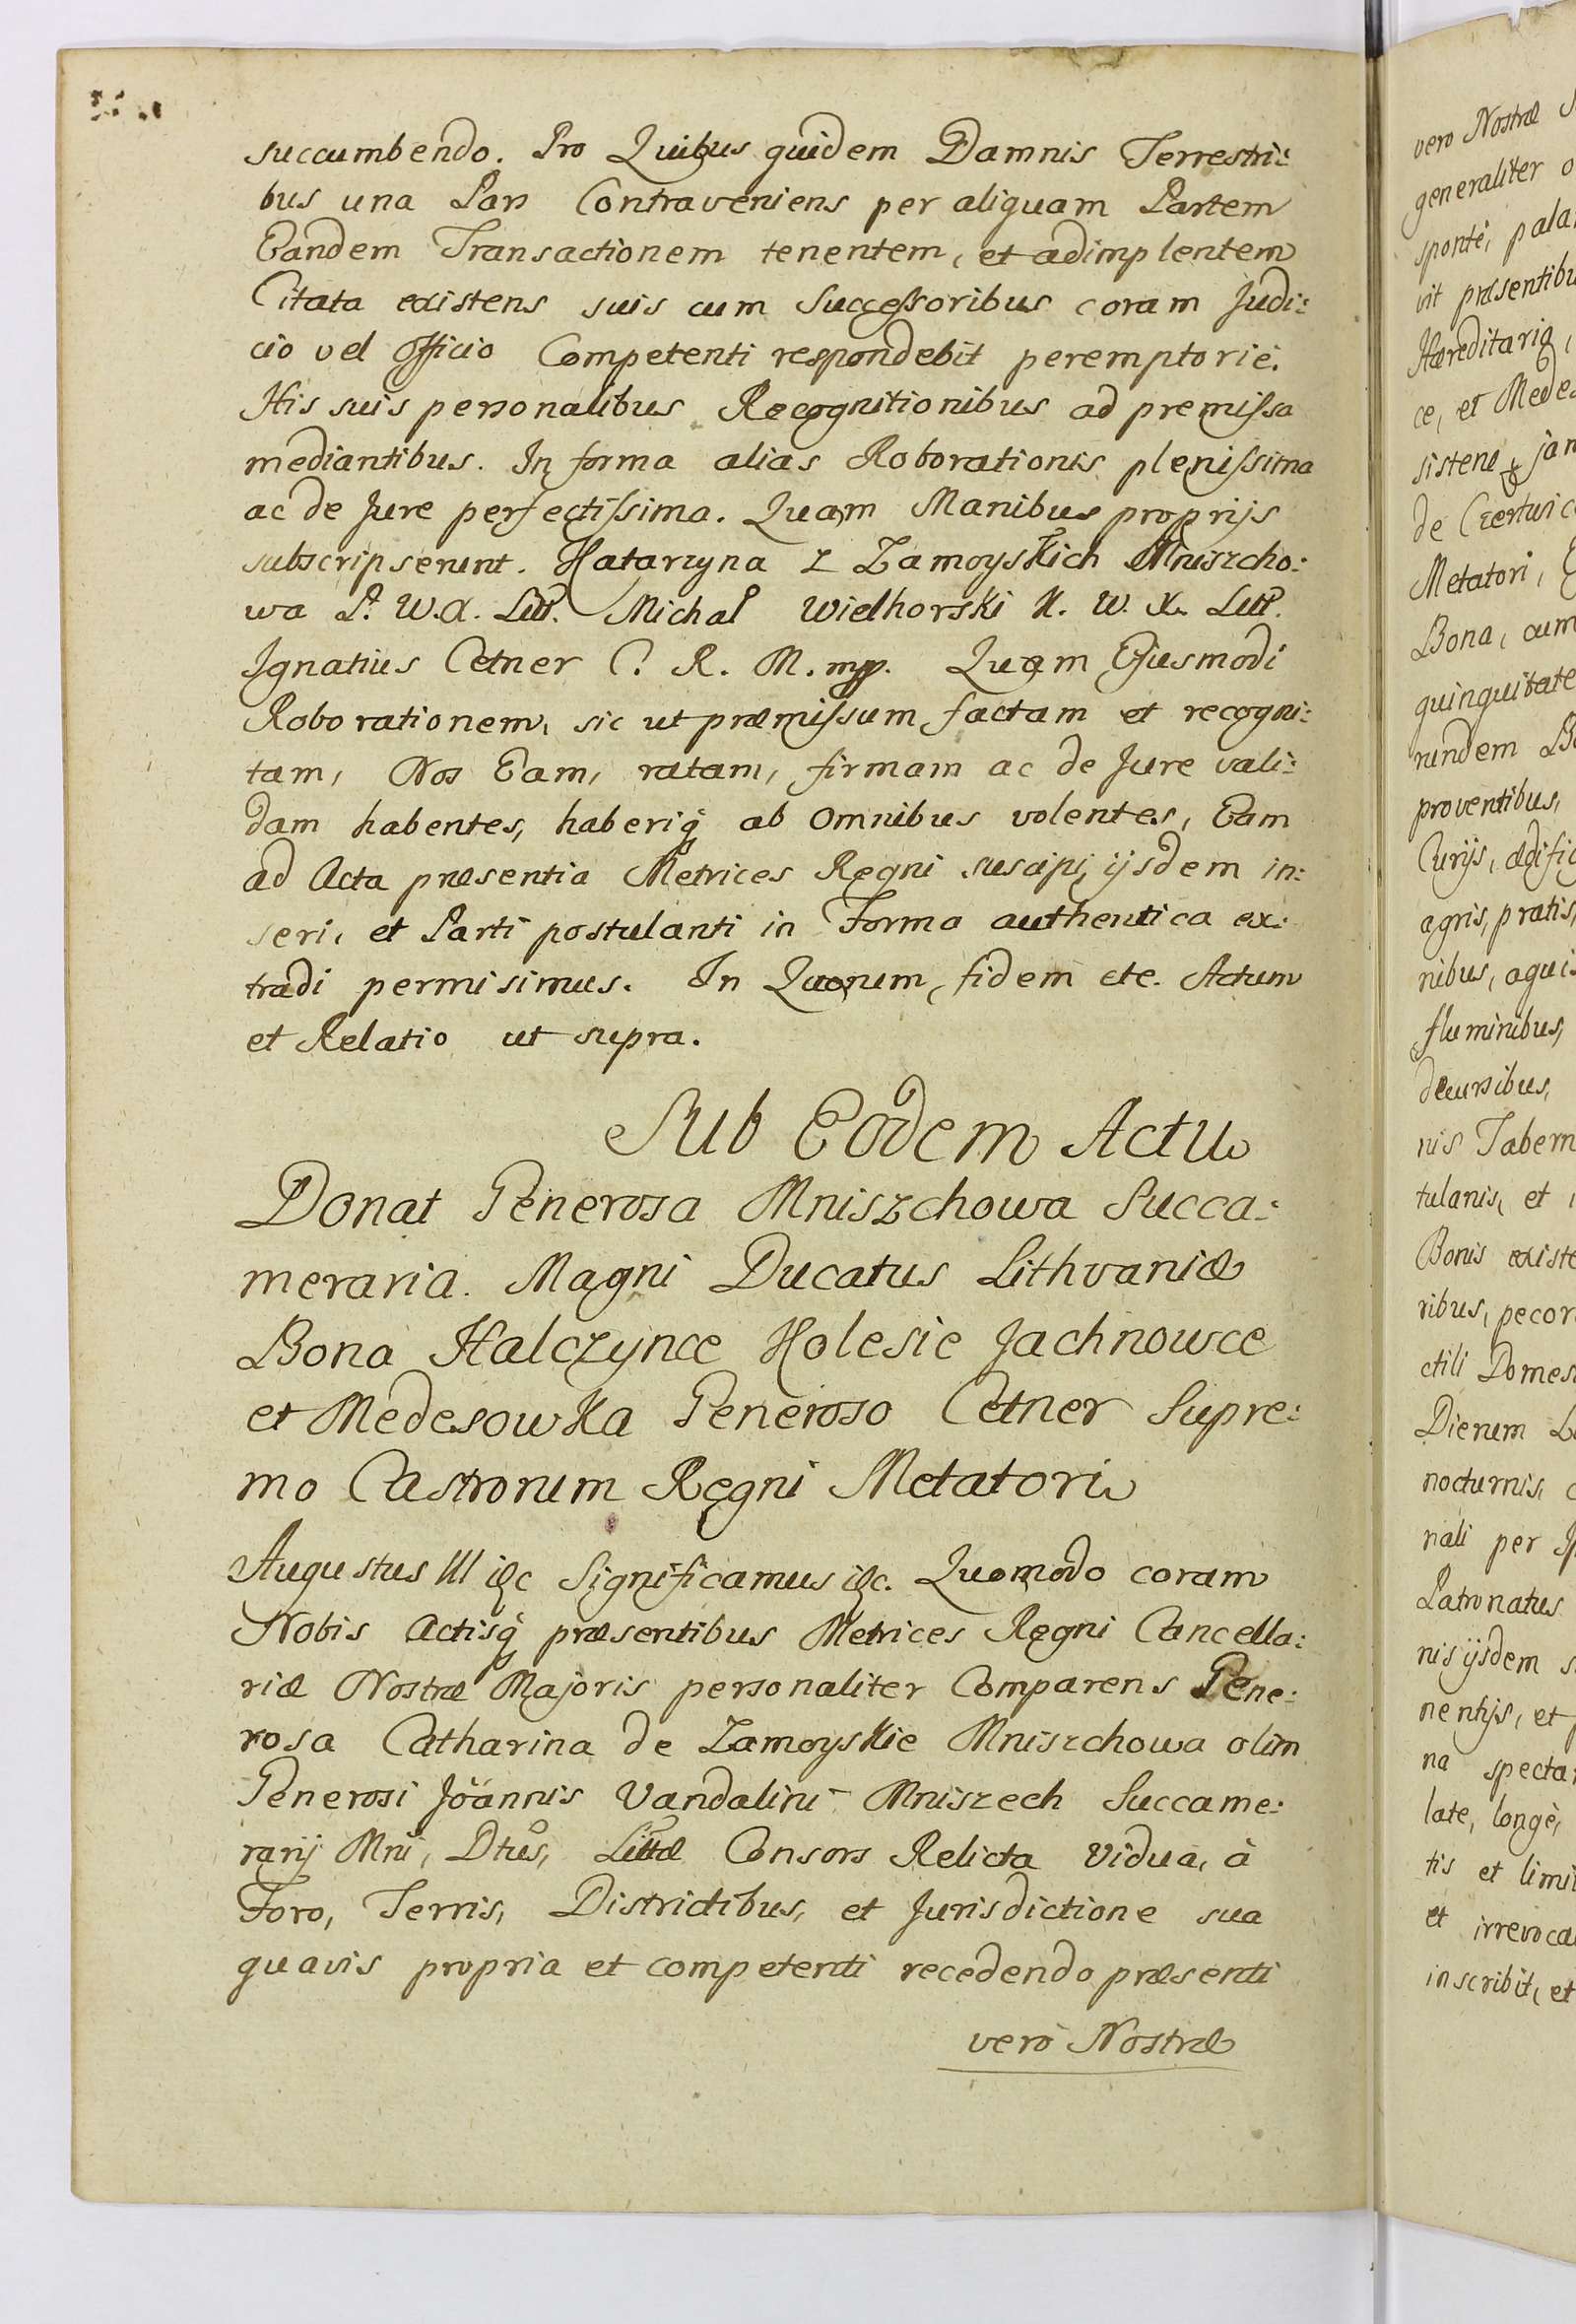 succumbendo. Pro Quibus quidem Damnis Terrestri:
bus una Pars Contraveniens per aliquam Partem
Eandem Transactionem tenentem, et adimplentem
Citata existens suis cum Successoribus coram Judi:
cio vel Officio Competenti respondebit peremptorie.
His suis personalibus Recognitionibus ad premissa
mediantibus. In forma alias Roborationis plenissima
ac de Jure perfectissima. Quam Manibus proprijs
subscripserunt. Katarzyna z Zamoyskich Mniszcho:
wa P. W. X. Litt. Michał Wielhorski K. W. X. Litt.
Ignatius Cetner C. R. M. mp. Quam Ejusmodi
Roborationem, sic ut præmissum factam et recogni:
tam, Nos Eam, ratam, firmam ac de Jure vali:
dam habentes, haberiq ab Omnibus volentes, Eam
ad Acta præsentia Metrices Regni suscipi, ijsdem in:
seri, et Parti postulanti in Forma authentica ex:
tradi permisimus. In Quorum, fidem etc. Actum
et Relatio ut supra.
Sub Eodem Actu
Donat Generosa Mniszchowa Succa:
meraria. Magni Ducatus Lithvaniæ
Bona Halczynce Holesie Jachnowce
et Medesowka Generoso Cetner Supre:
mo Castrorum Regni Metatori
Augustus III etc Significamus etc. Quomodo coram
Nobis Actisq præsentibus Metrices Regni Cancella:
riæ Nostræ Majoris personaliter Comparens Gene:
rosa Catharina de Zamoyskie Mniszchowa olim
Generosi Joannis Vandalini Mniszech Succame:
rarij Mni, Dtus, Littæ Consors Relicta Vidua, à
Foro, Terris, Districtibus, et Jurisdictione sua
quavis propria et competenti recedendo præsenti
verò Nostræ
vero Nostræ
generaliter
sponte,
vit præsentibu
Hæreditaria,
ce, et Medes
sistene
de Czertwic
Metatori,
Bona, cum
quinquitate
rundem
proventibus,
Curijs, ædific
agris, pratis,
nibus, aquis
fluminibus,
decursibus,
nis Tabern
tulanis, et
Bonis existe
ribus, pecor
ctili Domes
Dierum
nocturnis,
nali per
Patronatus
nis ijsdem
nentijs, et
na spectan
late, longè,
tis et limi
et irrevoca
inscribit, et